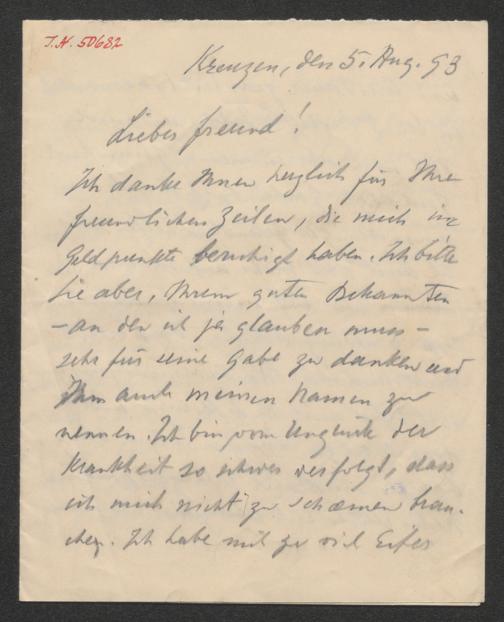 I.N. 50682
Kreuzen, den 5. Aug. 93
Lieber Freund!
Ich danke Ihnen herzlich für Ihre
freundlichen Zeilen, die mich im
Geldpunkte beruhigt haben. Ich bitte
Sie aber, Ihrem guten Bekannten
– an den ich ja glauben muss –
sehr für seine Gabe zu danken und
Ihm auch meinen Namen zu
nennen. Ich bin vom Unglück der
Krankheit so schwer verfolgt, dass
ich mich nicht zu schæmen brau-
che. Ich habe mit zu viel Eifer